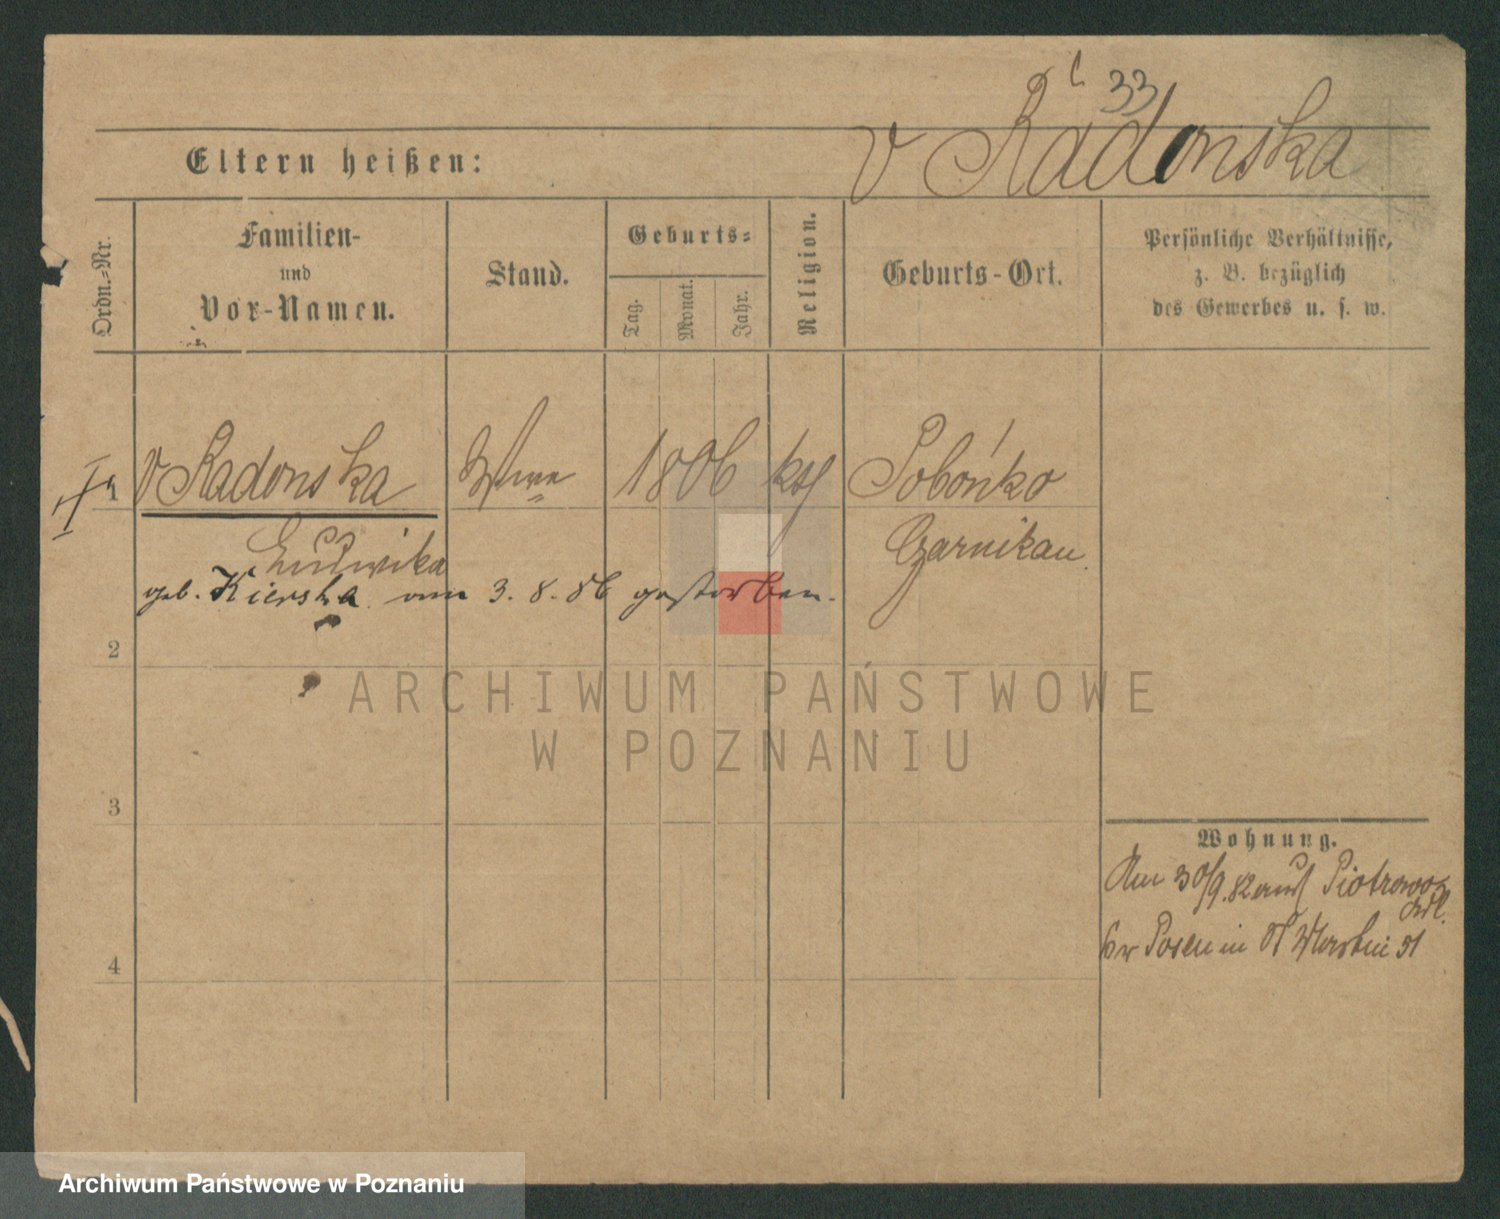 33
v Radonska
Eltern heißen:
Ordn.-Nr.
Familien-
und
Vor-Namen.
Stand.
Geburts-
Tag.
Monat.
Jahr.
Religion.
Geburts-Ort.
Persönliche Verhältnisse,
z. B. bezüglich
des Gewerbes u. s. w.
1
v Radonska
Wwe
1806
kth
Sobońko
Ludwika
Czarnikau
geb. Kierska am 3. 8. 86 gestorben.
2
ARCHIWUM PAŃSTWOWE
W POZNANIU
3
Wohnung.
Am 30/9. 82 auf Piotrowo
Posen in St Martin 51
4
Archiwum Państwowe w Poznaniu